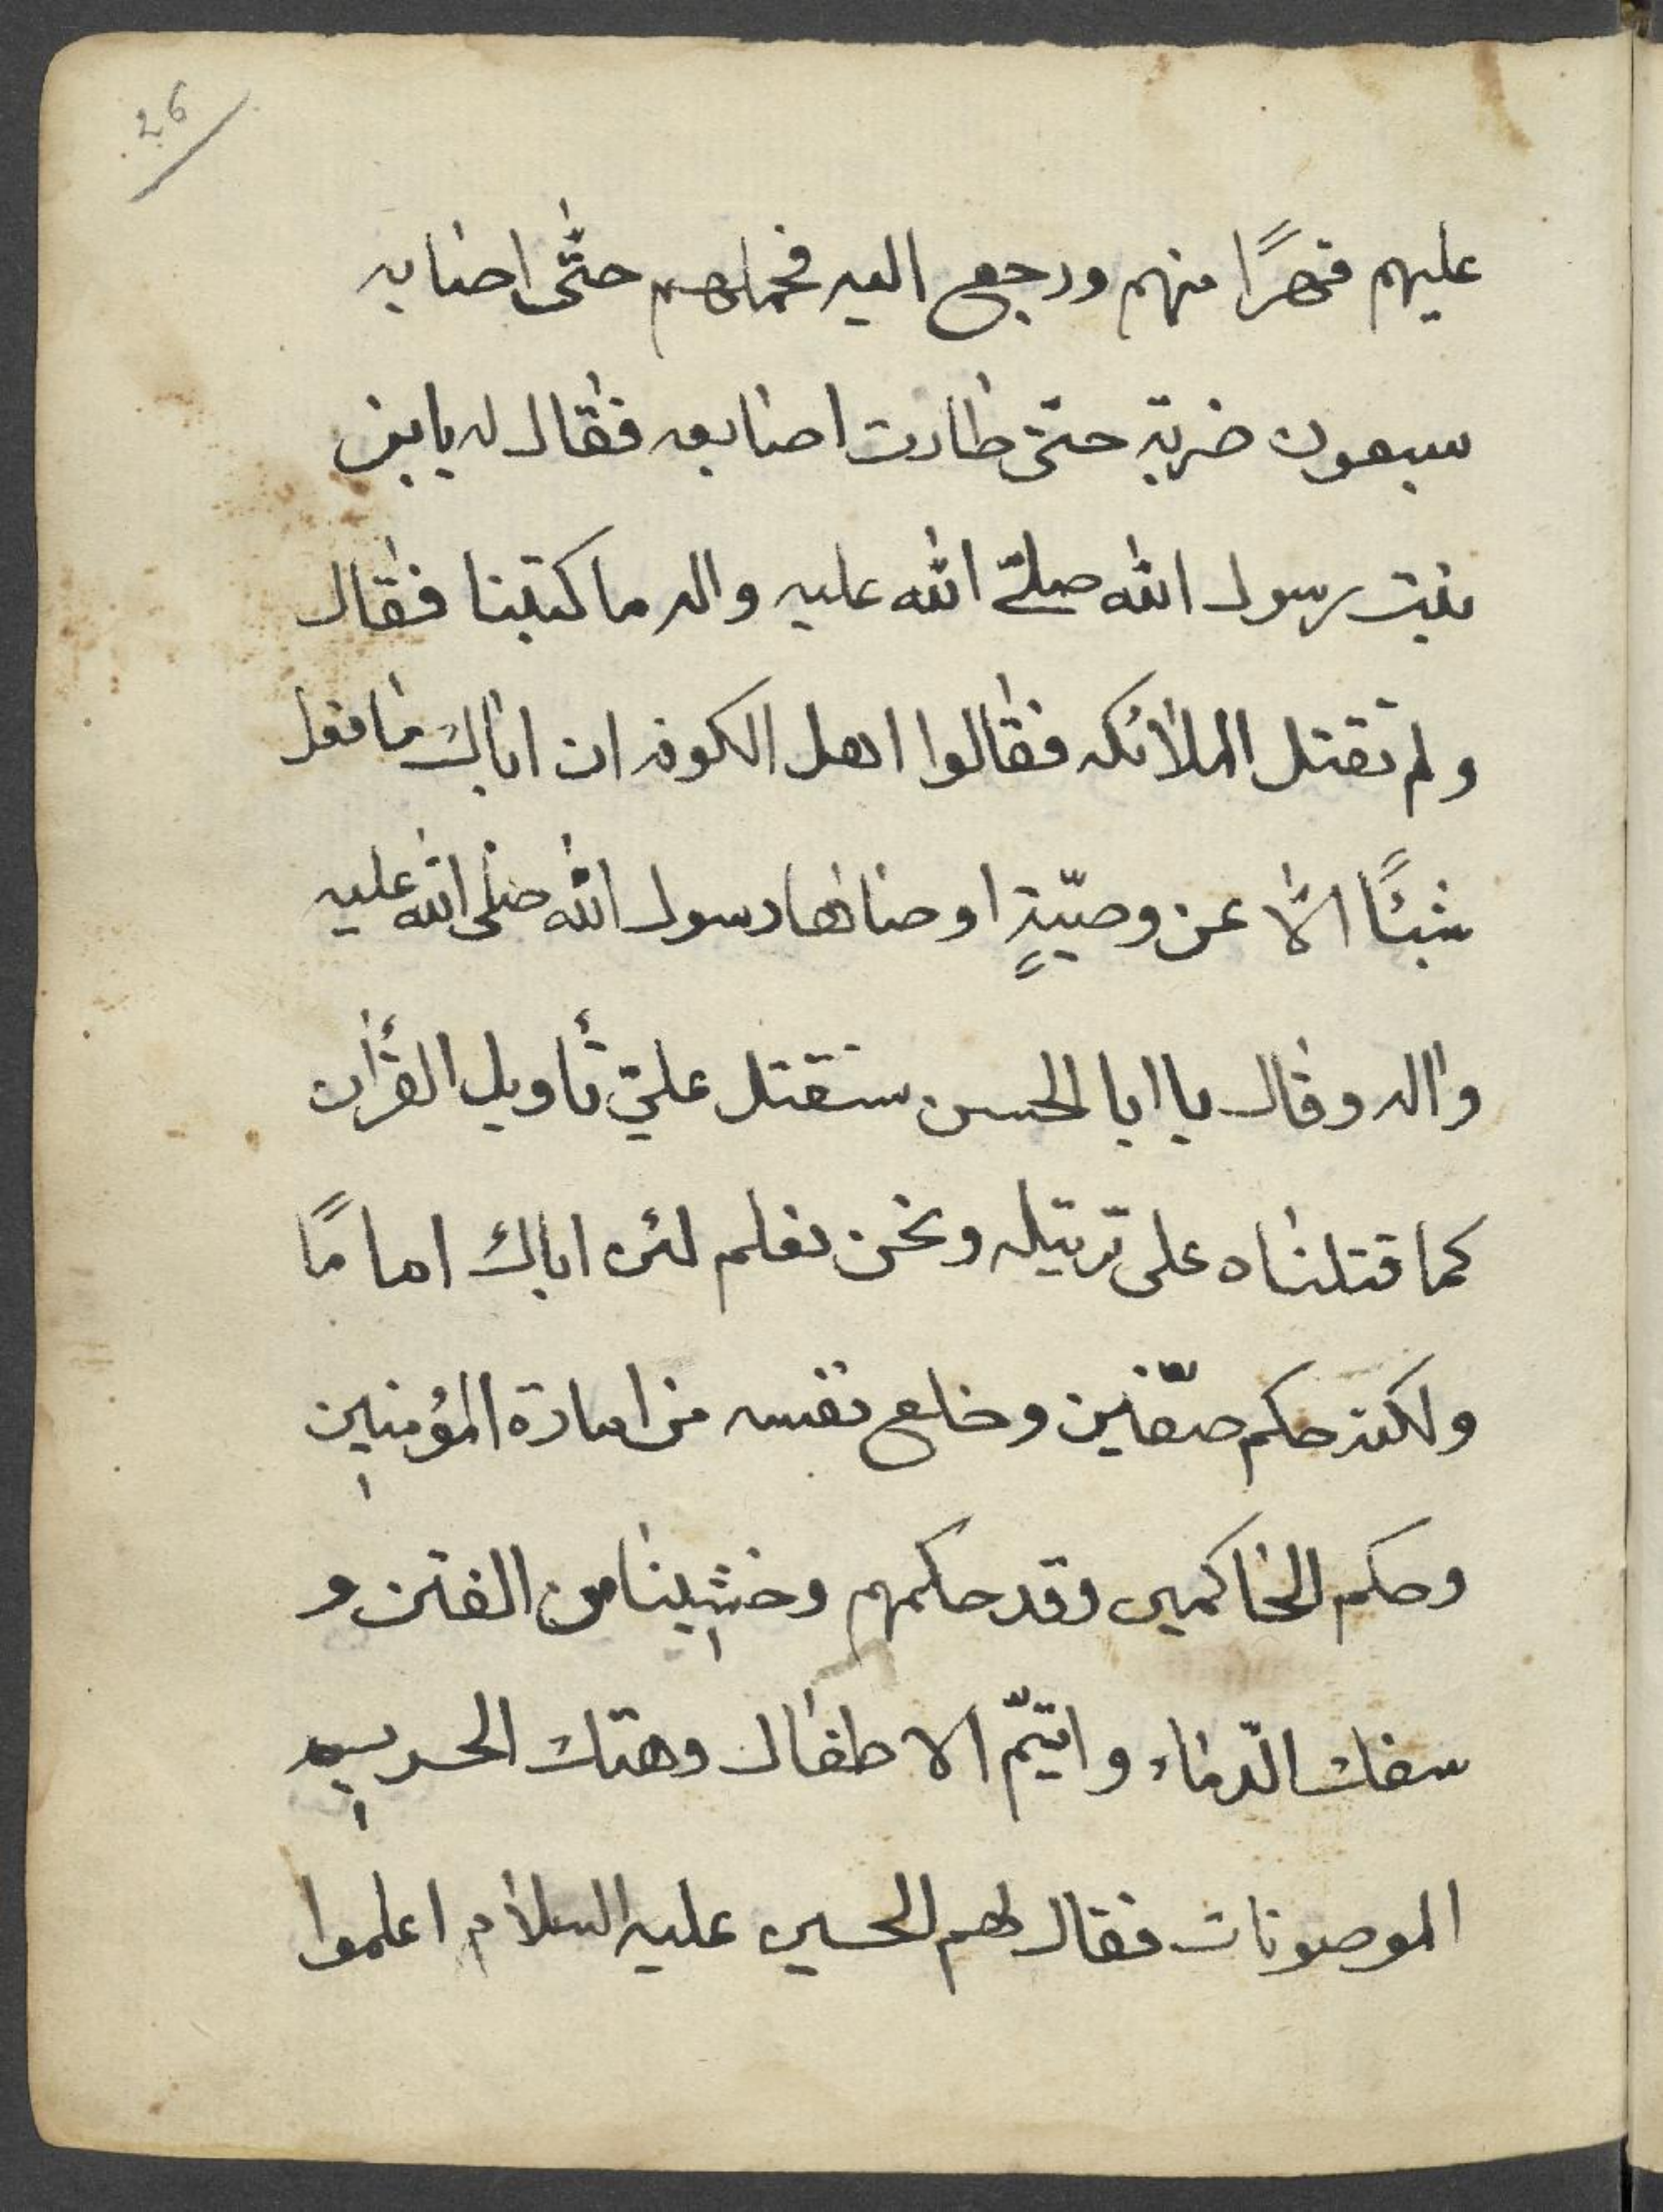 26
عليهم قهرًا منهم ورجع اليه فحملهم حتّى اصابه
سبعون ضربة حتى طارت اصابعه فقال له يابن
بنت رسول الله صلّى الله عليه واله ما كتبنا فقال
ولم تقتل الملائكه فقالوا اهل الكوفه ان اباك ما فعل
شيئًا الّا عن وصيّةٍ اوصاها رسول الله صلى الله عليه
واله وقال يا ابا الحسن ستقتل علي تأويل القرأن
كما قتلناه على ترتيله ونحن نعلم لئن اباك امامًا
ولكنه حكم صفّين وخلع نفسه من امارة المؤمنين
وحكم الحاكمين وقد حكمهم وخشينا من الفتن و
سفك الدّماء وايتمّ الاطفال وهتك الحريم
الموصونات فقال لهم الحسين عليه السلام اعلموا